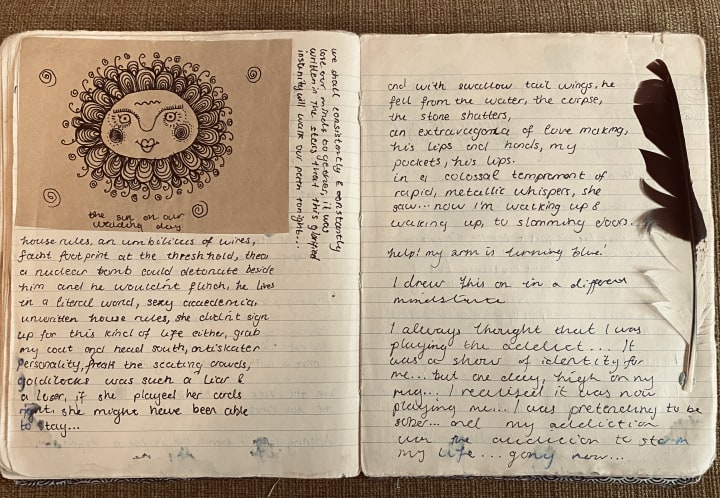 the sun on our
wedding day
we shall consistently & constantly
lose our minds together, it was
written in the stars that this glorified
insanity will walk our path tonight...
house rules, an umbilicus of wires,
faint footprint at the threshold, theo
a nuclear bomb could detonate beside
him and he wouldn't flinch, he lives
in a literal world, sexy academia.
unwritten house rules, she didn't sign
up for this kind of life either, grab
my coat and head south, antiskater
personality, freak the scating crowds,
goldilocks was such a liar &
a luer, if she played her cards
right, she might have been able
to stay...
and with swallow tail wings, he
fell from the water, the corpse,
the stone shatters,
an extravaganza of love making,
his lips and hands, my
pockets, his lips.
in a colossal temprament of
rapid, metallic whispers, she
saw... now i'm walking up &
walking up, to slamming doors...
help! my arm is turning blue!
I drew this on in a different
mindstate
I always thought that I was
playing the addict... It
was a show of identity for
me... but one day, high on my
rug... I realised it was now
playing me... I was pretending to be
sober... and my addiction
was the audition to
my life... now...